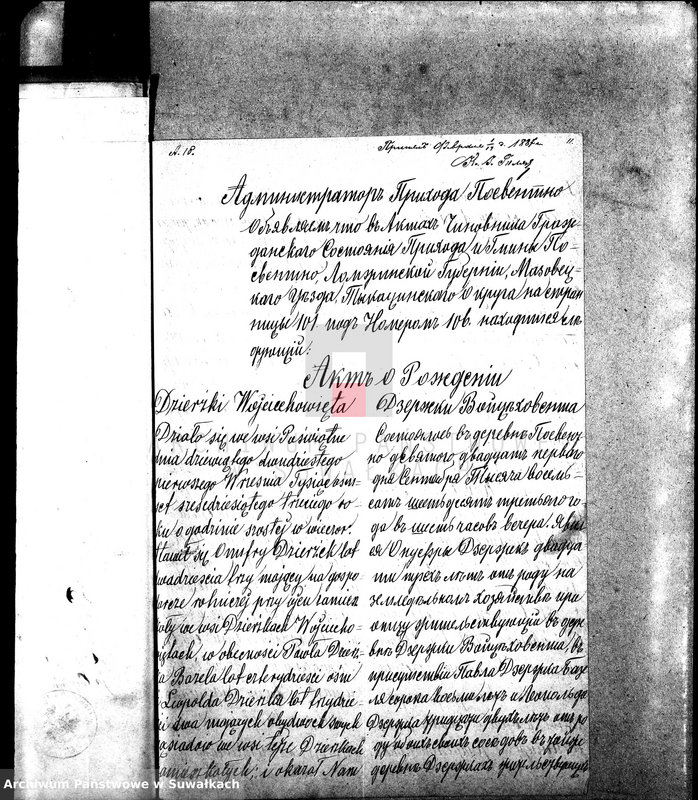 A. 18.
11
Администраторъ Прихода Посвентно
Объявляетъ что въ Актахъ Чиновника Граж-
данскаго Состоянія Прихода и Гмины По-
свентно, Ломжинской Губерніи, Мазовец-
каго Уѣзда, Тыкоцинскаго Округа на стран
ницы 101 подъ Номеромъ 106. находится слѣ
дующій:
Актъ о Рожденіи
Dzierżki Wojciechowięta
Działo się we wsi Poświątne
dnia dziewiątego dwudziestego
pierwszego Września Tysiąc ośm
set sześćdziesiątego trzeciego ro-
ku o godzinie szóstej w wieczor.
Stawił się Onufry Dzierżek lat
dwadzieścia trzy mający na gospo
darce rolniczej przy ojcu zamiesz
kały we wsi Dzierżkach Wojciecho-
więtach, w obecności Pawła Dzierż
ka Bazela lat czterdzieści ośm
i Leopolda Dzierżka lat trzydzie
ści dwa mających obydwóch swych
sąsiadów we wsi tejże Dzierżkach
zamieszkałych; i okazał Nam
Дзержки Войцѣховента
Состоялось въ деревнѣ Посвент-
но девятаго, двадцать перваго
дня Сентября Тысяча восемь-
сотъ шестьдесятъ третьяго го-
да въ шесть часовъ вечера. Явил
ся Онуфры Дзержекъ двадца
ти трехъ лѣтъ отъ роду на
земледѣльномъ хозяйствѣ при
отцу жительствующій въ дере
внѣ Дзержки Войцѣховента, въ
присутствіи Павла Дзержка Базе
ля сорока восьми лѣтъ и Леопольда
Дзержка тридцати двухъ лѣтъ отъ ро
ду обоихъ своихъ сосѣдовъ въ тойже
деревнѣ Дзержкахъ жительствующ
Archiwum Państwowe w Suwałkach